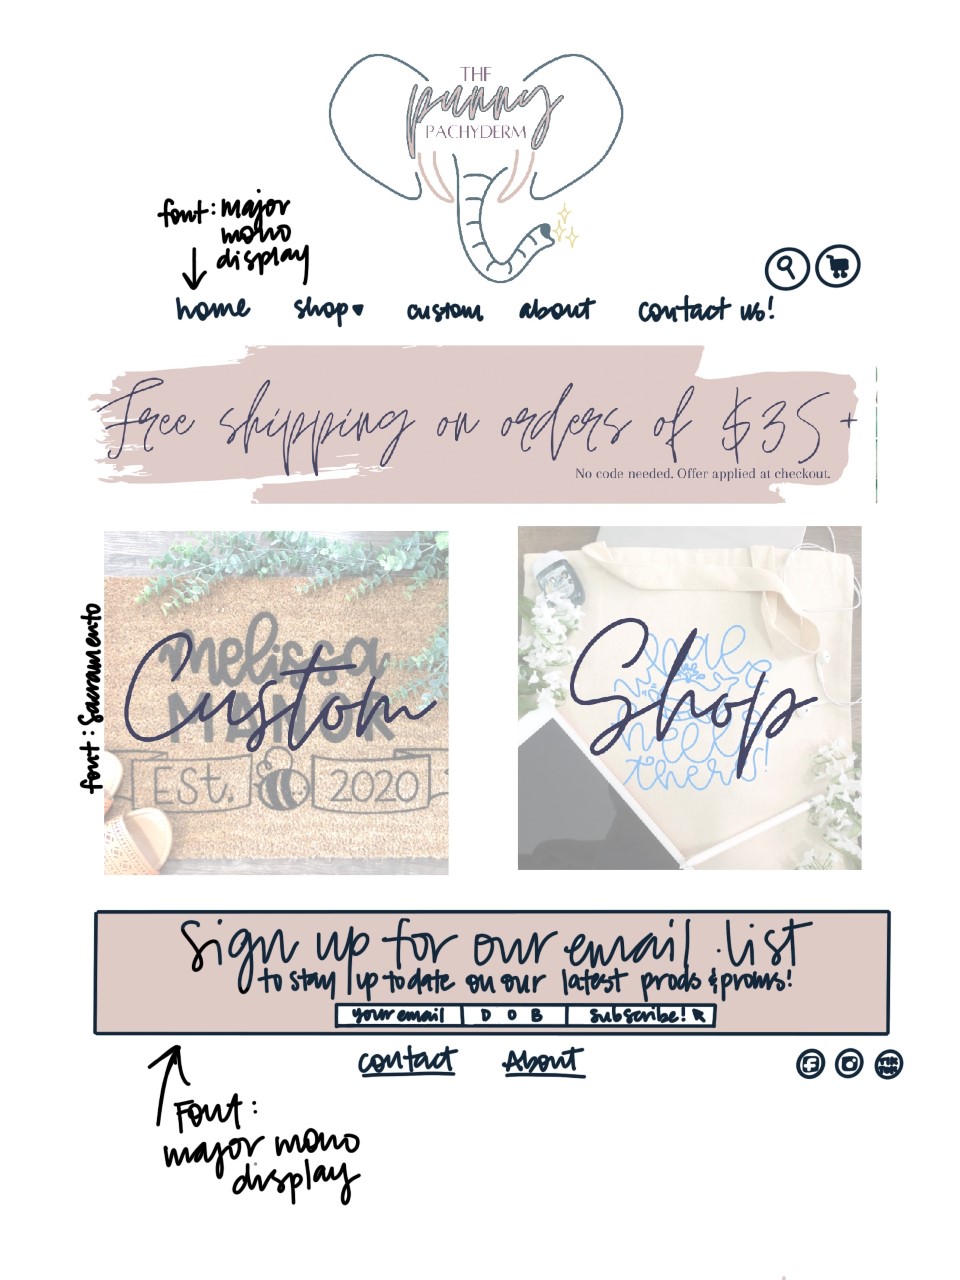 THE
punny
PACHYDERM
font: major
mono
display
home shop♥ custom about contact us!
Free shipping on orders of $35+
No code needed. Offer applied at checkout.
font: Sacramento
melissa
Custom
MANOR
EST. 2020
Shop
needs
there!
Sign up for our email list
to stay up to date on our latest prods & proms!
your email D O B subscribe!
contact About
TIK
TOK
Font:
major mono
display